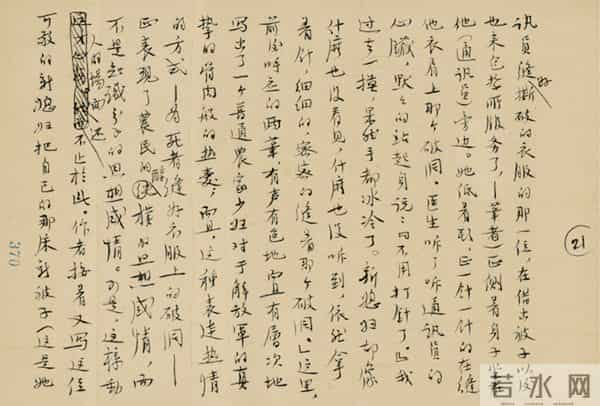 讯员缝好撕破的衣服的那一位,在借出被子以后
也来包扎所服务了,——笔者)正侧着身子坐在
他(通讯员)旁边。她低着头,正一针一针的在缝
他衣肩上那个破洞。医生听了听通讯员的
心臟,默默的站起身说:「不用打针了。」我
过去一摸,果然手都冰冷了。新媳妇却像
什么也没看见,什么也没听到,依然拿
着针,细细的,密密的缝着那个破洞。」这里,
前后呼应的两笔,有声有色地而且有层次地
写出了一个普通农家少妇对于解放军的真
挚的骨肉般的热爱;而且,这种表达热情
的方式——为死者缝好衣服上的破洞——
正表现了农民的醇朴的思想感情,而
不是知识分子的思想感情。可是,这样动
人的场面还不止於此。作者接着又写这位
可敬的新媳妇把自己的那床新被子(这是她
21
370
若水网